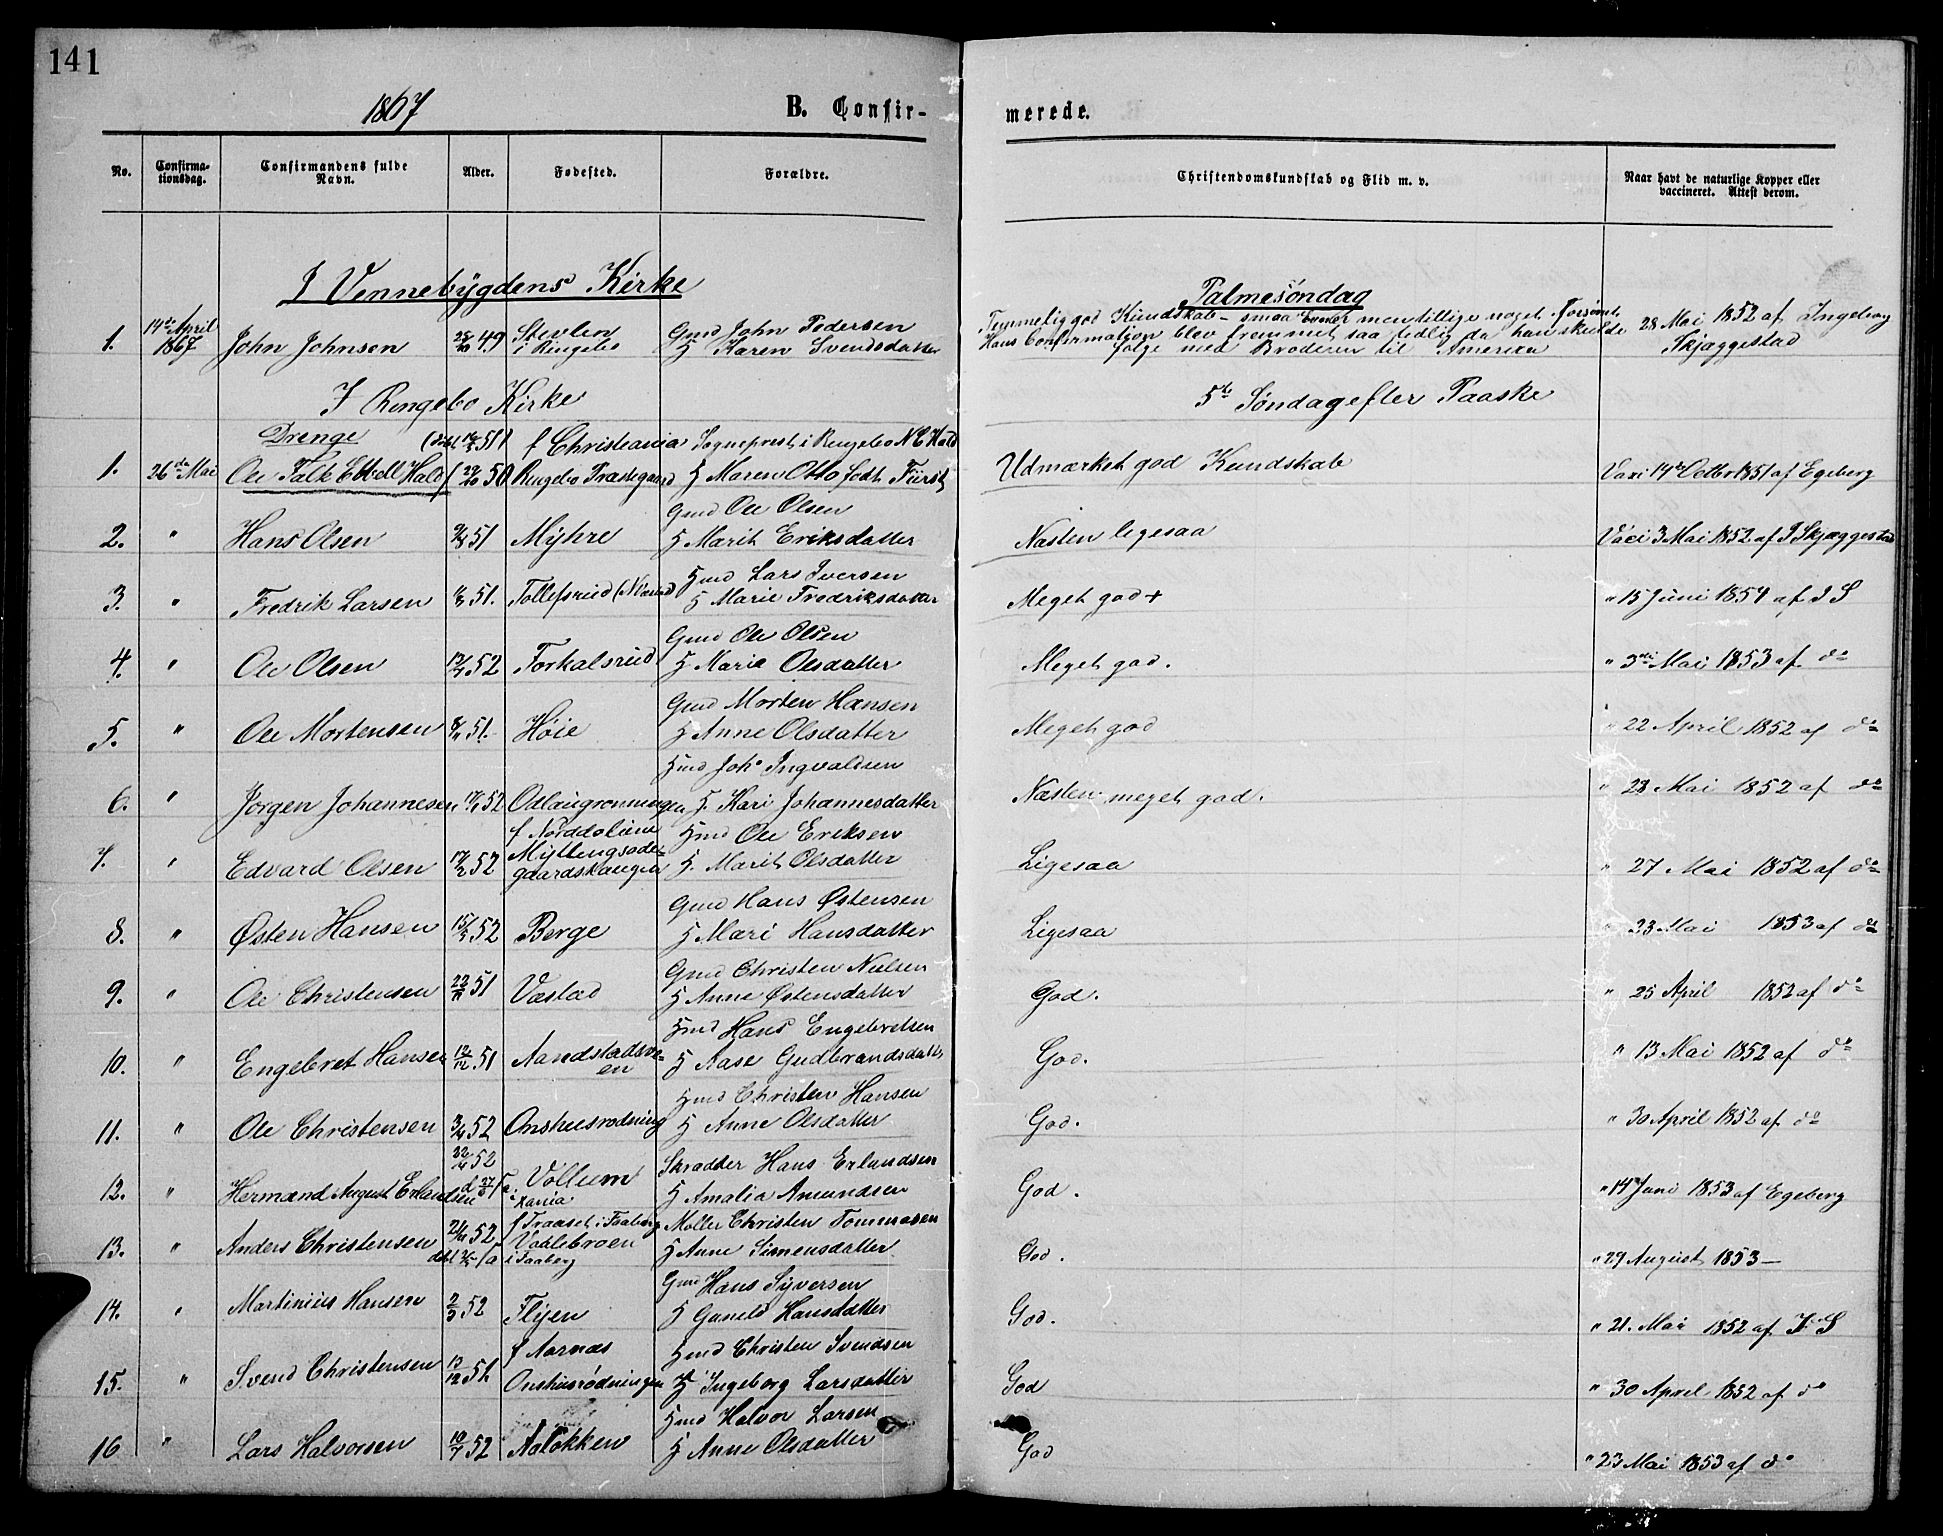 141
1867
B. Confir-
merede.
No.
Confirma-
tionsdag.
Confirmandens fulde
Navn.
Alder.
Fødested.
Forældre.
Christendomskundskab og Flid m. v.
Naar havt de naturlige Kopper eller
vaccineret. Attest derom.
I Vennebygdens Kirke
Palmesøndag
1. 14de April 1867 John Johnsen 49 i Ringebo Gmd John Pedersen
H Karen Svendsdatter
Temmelig god Kundskab – smaa Evner men tillige noget Forsømt.
Hans Confirmation blev fremmet saa tidlig da han skulde
følge med Broderen til America
28 Mai 1852 af Ingeborg
Skjæggestad
I Ringebo Kirke
5te Søndag efter Paaske
Drenge f Christiania Sognepræst i Ringebo N C Hald
1. 26de Mai Ole Falk Ebbell Hald 50 Ringebo Præstegaard H Maren Otto født Fürst Udmærket god Kundskab Vaci 14de Octbr 1851 af Egeberg
Gmd Ole Olsen
2. " Hans Olsen 51 Myhre H Marit Eriksdatter Næsten ligesaa Vaci 3 Mai 1852 af I Skjæggestad
Hmd Lars Iversen
3. " Fredrik Larsen 51. H Marie Fredriksdatter Meget god + " 15 Juni 1854 af I S
Gmd Ole Olsen
4. " Ole Olsen 52 Forkalsrud H Marie Olsdatter Meget god. " 3die Mai 1853 af do
Gmd Morten Hansen
5. " Ole Mortensen 51. Høie H Anne Olsdatter Meget god " 22 April 1852 af do
Hmd Johs Ingvaldsen
6. " Jørgen Johannesen 52 Odlaugrønningen H. Kari Johannesdatter Næsten meget god. " 28 Mai 1852 af do
Hmd Ole Eriksen
7. " Edvard Olsen 17/2 52 H. Marit Olsdatter Ligesaa " 27 Mai 1852 af do
Gmd Hans Østensen
8. " Østen Hansen 52 Berge H Mari Hansdatter Ligesaa " 23 Mai 1853 af do
Gmd Christen Nielsen
9. " Ole Christensen 22/11 51 Vestad H Anne Østensdatter God. " 25 April 1852 af do
Hmd Hans Engebretsen
10. " Engebret Hansen 12/12 51 H Aase Gudbrandsdatter God. " 13 Mai 1852 af do
Hmd Christen Hansen
11. " Ole Christensen 3/4 52 Onshusrødning H Anne Olsdatter God. " 30 April 1852 af do
52 Skrædder Hans Erlandsen
12. " Hermand August Erlandsen Vollum H Amalia Amundsen God. " 14 Juni 1853 af Egeberg
f i Faaberg Møller Christen Tommesen
13. " Anders Christensen 52 Vaalebroen H Anne Simensdatter God. " 29 August 1853 –
i Faaberg
Gmd Hans Syversen
14. " Martinius Hansen 2/3 52 Flyen H Guneld Hansdatter God. " 21. Mai 1852 af I S
f Aarnæs Hmd Christen Svendsen
15. " Svend Christensen 13/12 51 Onshusrødningen H Ingeborg Larsdatter God " 30 April 1852 af do
Hmd Halvor Larsen
16 " Lars Halvorsen 10/7 52 Aaløkken H Anne Olsdatter God " 23 Mai 1853 af do